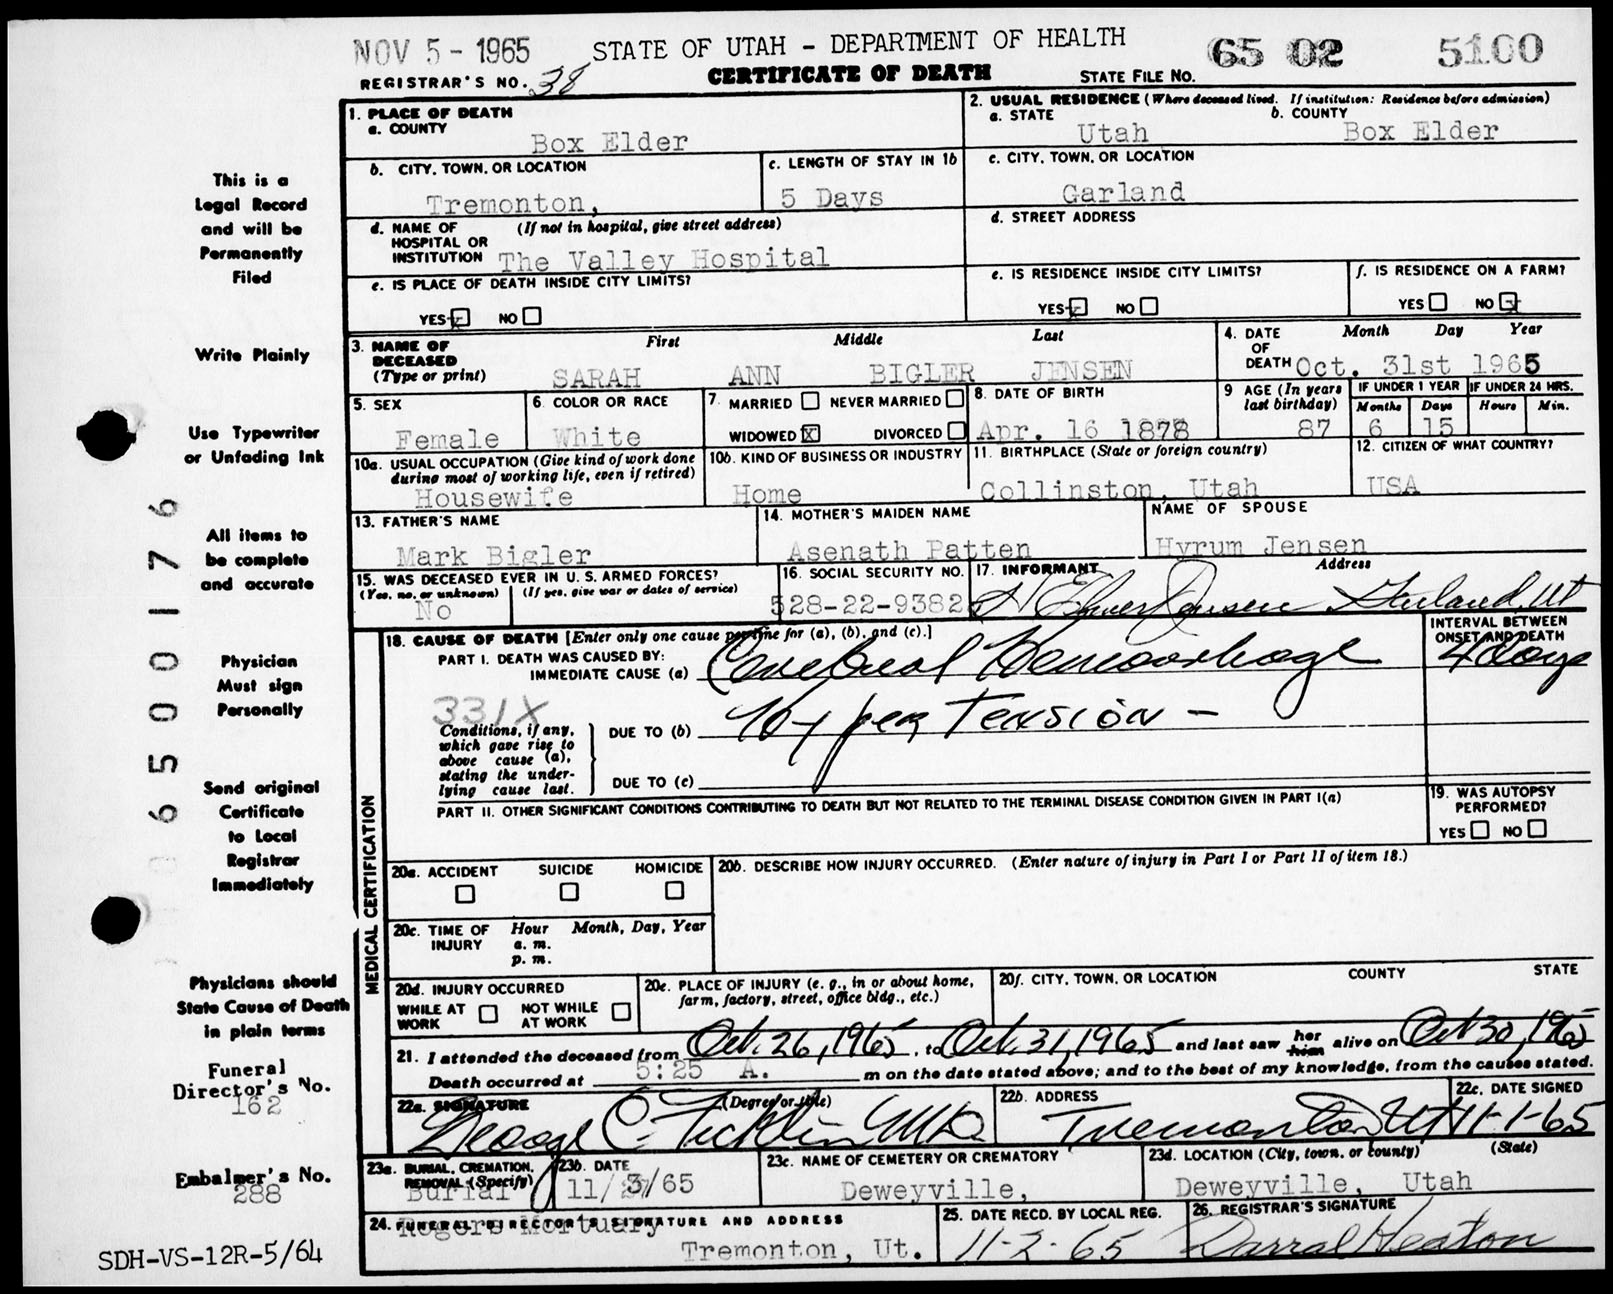 NOV 5 - 1965 STATE OF UTAH - DEPARTMENT OF HEALTH 65 02 5100
REGISTRAR'S NO. 38 CERTIFICATE OF DEATH STATE FILE NO.
This is a
Legal Record
and will be
Permanently
Filed
Write Plainly
Use Typewriter
or Unfading Ink
All items to
be complete
and accurate
Physician
Must sign
Personally
Send original
Certificate
to Local
Registrar
Immediately
Physicians should
State Cause of Death
in plain terms
Funeral
Director's No.
162
Embalmer's No.
288
SDH-VS-12R-5/64
65 00176
1. PLACE OF DEATH
a. COUNTY
Box Elder
2. USUAL RESIDENCE (Where deceased lived. If institution: Residence before admission)
a. STATE b. COUNTY
Utah Box Elder
b. CITY, TOWN, OR LOCATION
Tremonton,
c. LENGTH OF STAY IN 1b
5 Days
c. CITY, TOWN, OR LOCATION
Garland
d. NAME OF (If not in hospital, give street address)
HOSPITAL OR
INSTITUTION The Valley Hospital
d. STREET ADDRESS
e. IS PLACE OF DEATH INSIDE CITY LIMITS?
YES x NO
e. IS RESIDENCE INSIDE CITY LIMITS?
YES x NO
f. IS RESIDENCE ON A FARM?
YES NO x
3. NAME OF First Middle Last
DECEASED
(Type or print) SARAH ANN BIGLER JENSEN
4. DATE Month Day Year
OF
DEATH Oct. 31st 1965
5. SEX
Female
6. COLOR OR RACE
White
7. MARRIED NEVER MARRIED
WIDOWED X DIVORCED
8. DATE OF BIRTH
Apr. 16 1878
9 AGE (In years
last birthday)
87
IF UNDER 1 YEAR IF UNDER 24 HRS.
Months Days Hours Min.
6 15
10a. USUAL OCCUPATION (Give kind of work done
during most of working life, even if retired)
Housewife
10b. KIND OF BUSINESS OR INDUSTRY
Home
11. BIRTHPLACE (State or foreign country)
Collinston, Utah
12. CITIZEN OF WHAT COUNTRY?
USA
13. FATHER'S NAME
Mark Bigler
14. MOTHER'S MAIDEN NAME
Asenath Patten
NAME OF SPOUSE
Hyrum Jensen
15. WAS DECEASED EVER IN U. S. ARMED FORCES?
(Yes, no, or unknown) (If yes, give war or dates of service)
No
16. SOCIAL SECURITY NO.
528-22-9382
17. INFORMANT Address
H Elmer Jensen Garland, Ut
MEDICAL CERTIFICATION
18. CAUSE OF DEATH [Enter only one cause per line for (a), (b), and (c).]
INTERVAL BETWEEN
ONSET AND DEATH
PART I. DEATH WAS CAUSED BY:
IMMEDIATE CAUSE (a) Cerebral Hemorrhage 4 days
331X
Conditions, if any,
which gave rise to
above cause (a),
stating the under-
lying cause last.
DUE TO (b) Hypertension -
DUE TO (c)
PART II. OTHER SIGNIFICANT CONDITIONS CONTRIBUTING TO DEATH BUT NOT RELATED TO THE TERMINAL DISEASE CONDITION GIVEN IN PART I(a)
19. WAS AUTOPSY
PERFORMED?
YES NO
20a. ACCIDENT SUICIDE HOMICIDE
20b. DESCRIBE HOW INJURY OCCURRED. (Enter nature of injury in Part I or Part II of item 18.)
20c. TIME OF Hour Month, Day, Year
INJURY a. m.
p. m.
20d. INJURY OCCURRED
WHILE AT NOT WHILE
WORK AT WORK
20e. PLACE OF INJURY (e. g., in or about home,
farm, factory, street, office bldg., etc.)
20f. CITY, TOWN, OR LOCATION COUNTY STATE
21. I attended the deceased from Oct. 26, 1965, to Oct. 31, 1965 and last saw her him alive on Oct 30, 1965
Death occurred at 5:25 A. m on the date stated above; and to the best of my knowledge, from the causes stated.
22a. SIGNATURE (Degree or title)
George C. Ficklin MD.
22b. ADDRESS
Tremonton Ut
22c. DATE SIGNED
11-1-65
23a. BURIAL, CREMATION,
REMOVAL (Specify)
Burial
23b. DATE
11/3/65
23c. NAME OF CEMETERY OR CREMATORY
Deweyville,
23d. LOCATION (City, town, or county) (State)
Deweyville, Utah
24. FUNERAL DIRECTOR'S SIGNATURE AND ADDRESS
Rogers Mortuary
Tremonton, Ut.
25. DATE RECD. BY LOCAL REG.
11-2-65
26. REGISTRAR'S SIGNATURE
Darral Heaton